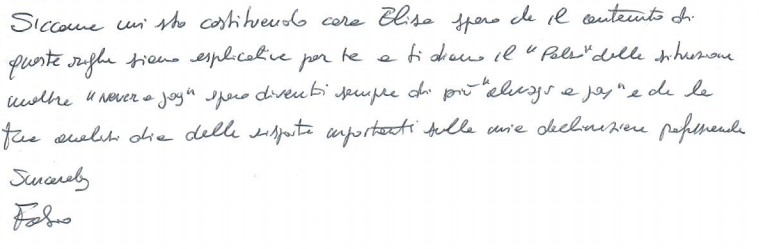 Siccome mi sto costituendo cara Elisa spero che il contenuto di
queste righe siano esplicative per te e ti diano il "Polso" della situazione
inoltre "never a joy" spero diventi sempre di più "always a joy" e che la
tua analisi dia delle risposte importanti sulla mia declinazione
Sincerely
Fabio